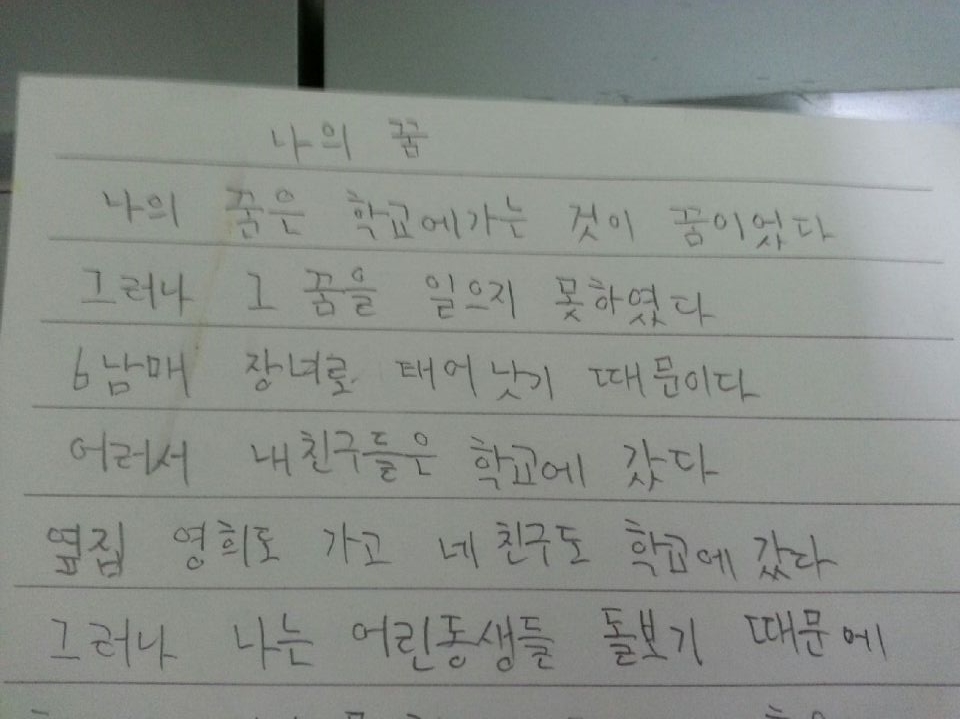 나의 꿈
나의 꿈은 학교에가는 것이 꿈이었다
그러나 그 꿈을 일으지 못하였다
6남매 장녀로 태어낫기 때문이다
어러서 내친구들은 학교에 갔다
옆집 영희도 가고 네친구도 학교에 갔다
그러나 나는 어린동생들 돌보기 때문에